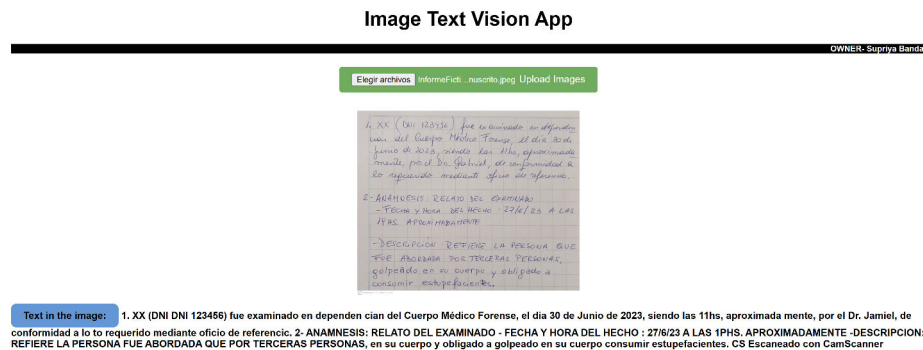 Image Text Vision App
OWNER- Supriya Banda
Elegir archivos InformeFicti ...nuscrito.jpeg Upload Images
1. XX (DNI 123456) fue examinado en dependen
cian del Cuerpo Médico Forense, el dia 30 de
Junio de 2023, siendo las 11hs, aproximada
mente, por el Dr. Gabriel, de conformidad a
lo requerido mediante oficio de referencia.
2- ANAMNESIS: RELATO DEL EXAMINADO
- FECHA Y HORA DEL HECHO: 27/6/23 A LAS
19HS APROXIMADAMENTE
-DESCRIPCIÓN: REFIERE LA PERSONA QUE
FUE ABORDADA POR TERCERAS PERSONAS,
golpeado en su cuerpo y obligado a
consumir estupefacientes.
Text in the image: 1. XX (DNI DNI 123456) fue examinado en dependen cian del Cuerpo Médico Forense, el dia 30 de Junio de 2023, siendo las 11hs, aproximada mente, por el Dr. Jamiel, de
conformidad a lo to requerido mediante oficio de referencic. 2- ANAMNESIS: RELATO DEL EXAMINADO - FECHA Y HORA DEL HECHO : 27/6/23 A LAS 1PHS. APROXIMADAMENTE -DESCRIPCION:
REFIERE LA PERSONA FUE ABORDADA QUE POR TERCERAS PERSONAS, en su cuerpo y obligado a golpeado en su cuerpo consumir estupefacientes. CS Escaneado con CamScanner